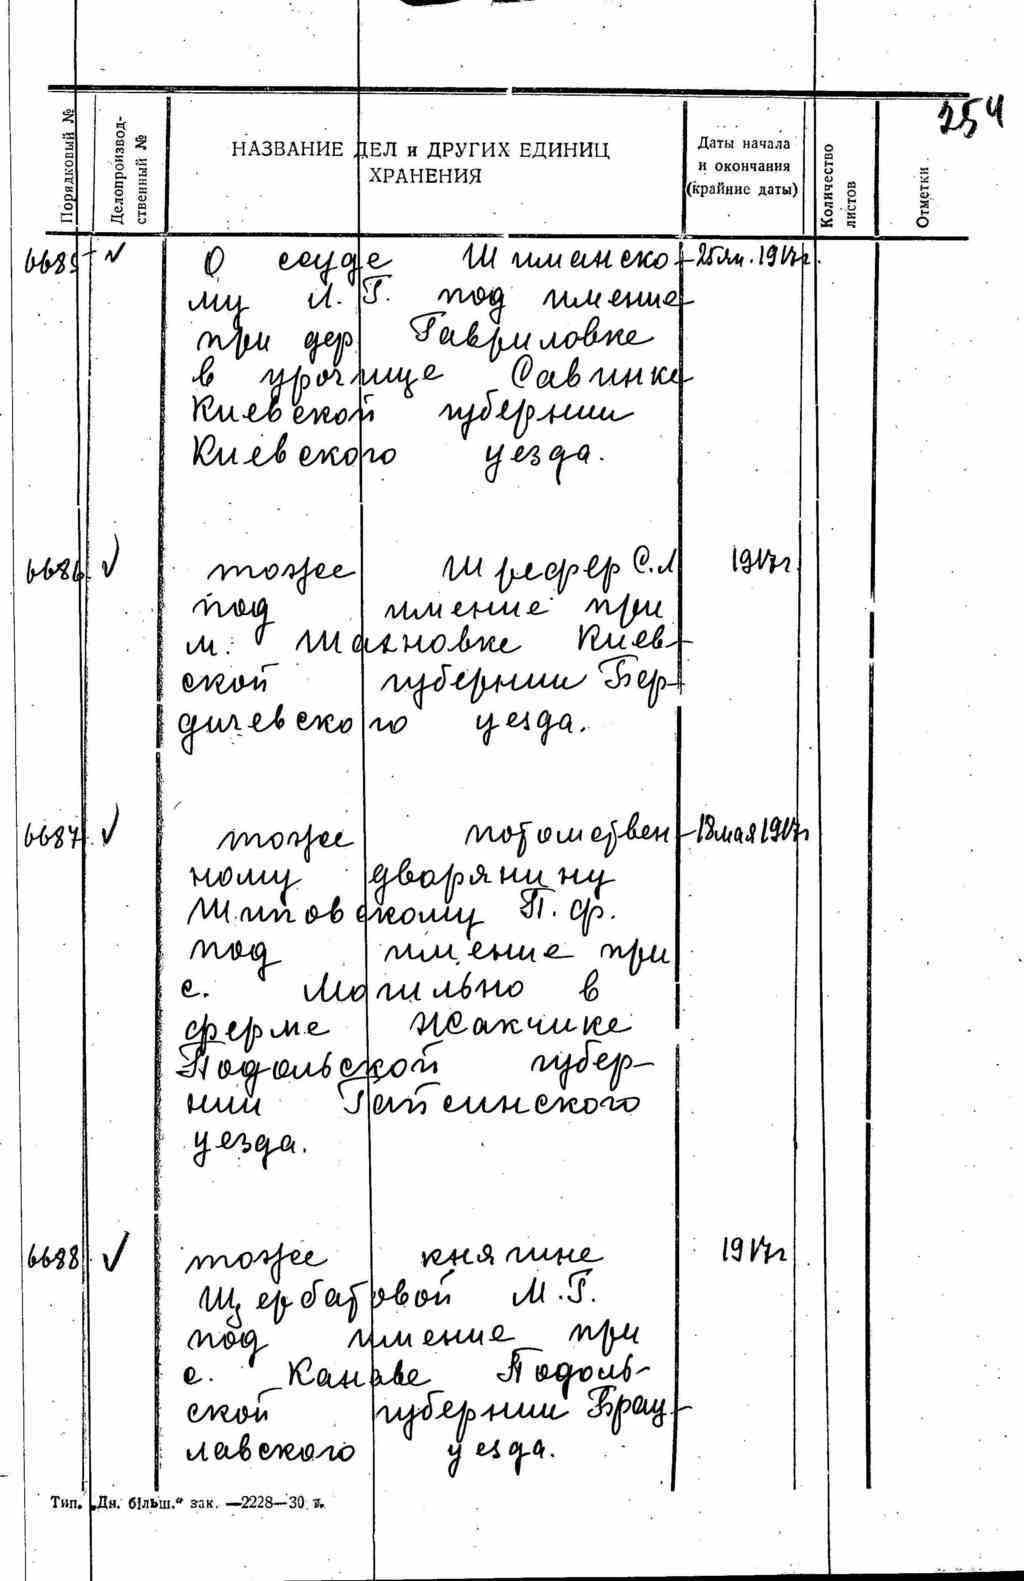 254
Порядковый №
Делопроизвод-
ственный №
НАЗВАНИЕ ДЕЛ и ДРУГИХ ЕДИНИЦ
ХРАНЕНИЯ
Даты начала
и окончания
(крайние даты)
Количество
листов
Отметки
6685 О ссуде Шиманско- 25 ян. 1917 г.
му Л. Г. под имение
при дер. Гавриловке
в урочище Савинке
Киевской губернии
Киевского уезда.
6686 тоже Шрефер С. Л. 1917 г.
под имение при
м. Махновке Киев-
ской губернии Бер-
дичевского уезда.
6687 тоже потомствен- 18 мая 1917 г
ному дворянину
Шиповскому П. Ф.
под имение при
с. Могильно в
ферме Жакчике
Подольской губер-
нии Гайсинского
уезда.
6688 тоже княгине 1917 г
Щербатовой М. Г.
под имение при
с. Канаве Подоль-
ской губернии Брац-
лавского уезда.
Тип. „Дн. більш.“ зак. —2228—30 г.